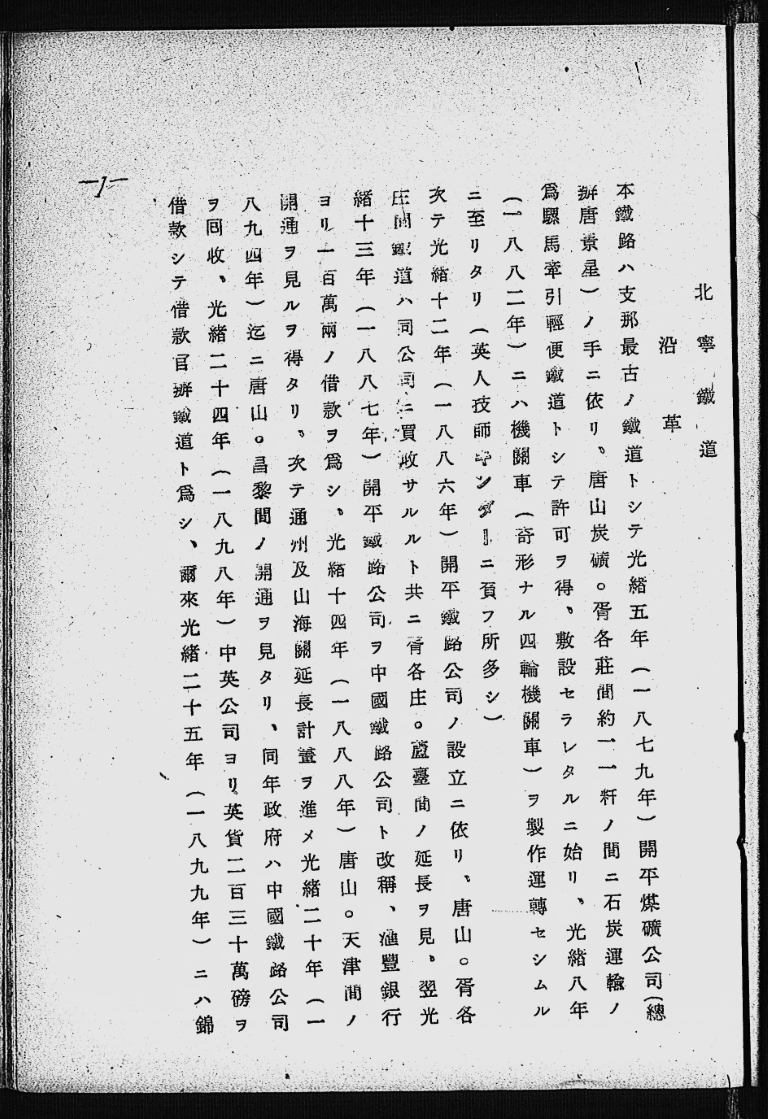 北寧鐵道
沿革
本鐵路ハ支那最古ノ鐵道トシテ光緒五年（一八七九年）開平煤礦公司（總
辦唐景星）ノ手ニ依リ、唐山炭礦。胥各莊間約一一粁ノ間ニ石炭運輸ノ
爲騾馬牽引輕便鐵道トシテ許可ヲ得、敷設セラレタルニ始リ、光緒八年
（一八八二年）ニハ機關車（奇形ナル四輪機關車）ヲ製作運轉セシムル
ニ至リタリ（英人技師キンダーニ負フ所多シ）
次テ光緒十二年（一八八六年）開平鐵路公司ノ設立ニ依リ、唐山。胥各
庄間鐵道ハ司公司ニ買收サルルト共ニ胥各庄。蘆臺間ノ延長ヲ見、翌光
緒十三年（一八八七年）開平鐵路公司ヲ中國鐵路公司ト改稱、滙豐銀行
ヨリ一百萬兩ノ借款ヲ爲シ、光緒十四年（一八八八年）唐山。天津間ノ
開通ヲ見ルヲ得タリ、次テ通州及山海關延長計畫ヲ進メ光緒二十年（一
八九四年）迄ニ唐山。昌黎間ノ開通ヲ見タリ、同年政府ハ中國鐵路公司
ヲ回收、光緒二十四年（一八九八年）中英公司ヨリ英貨二百三十萬磅ヲ
借款シテ借款官辦鐵道ト爲シ、爾來光緒二十五年（一八九九年）ニハ錦
—1—